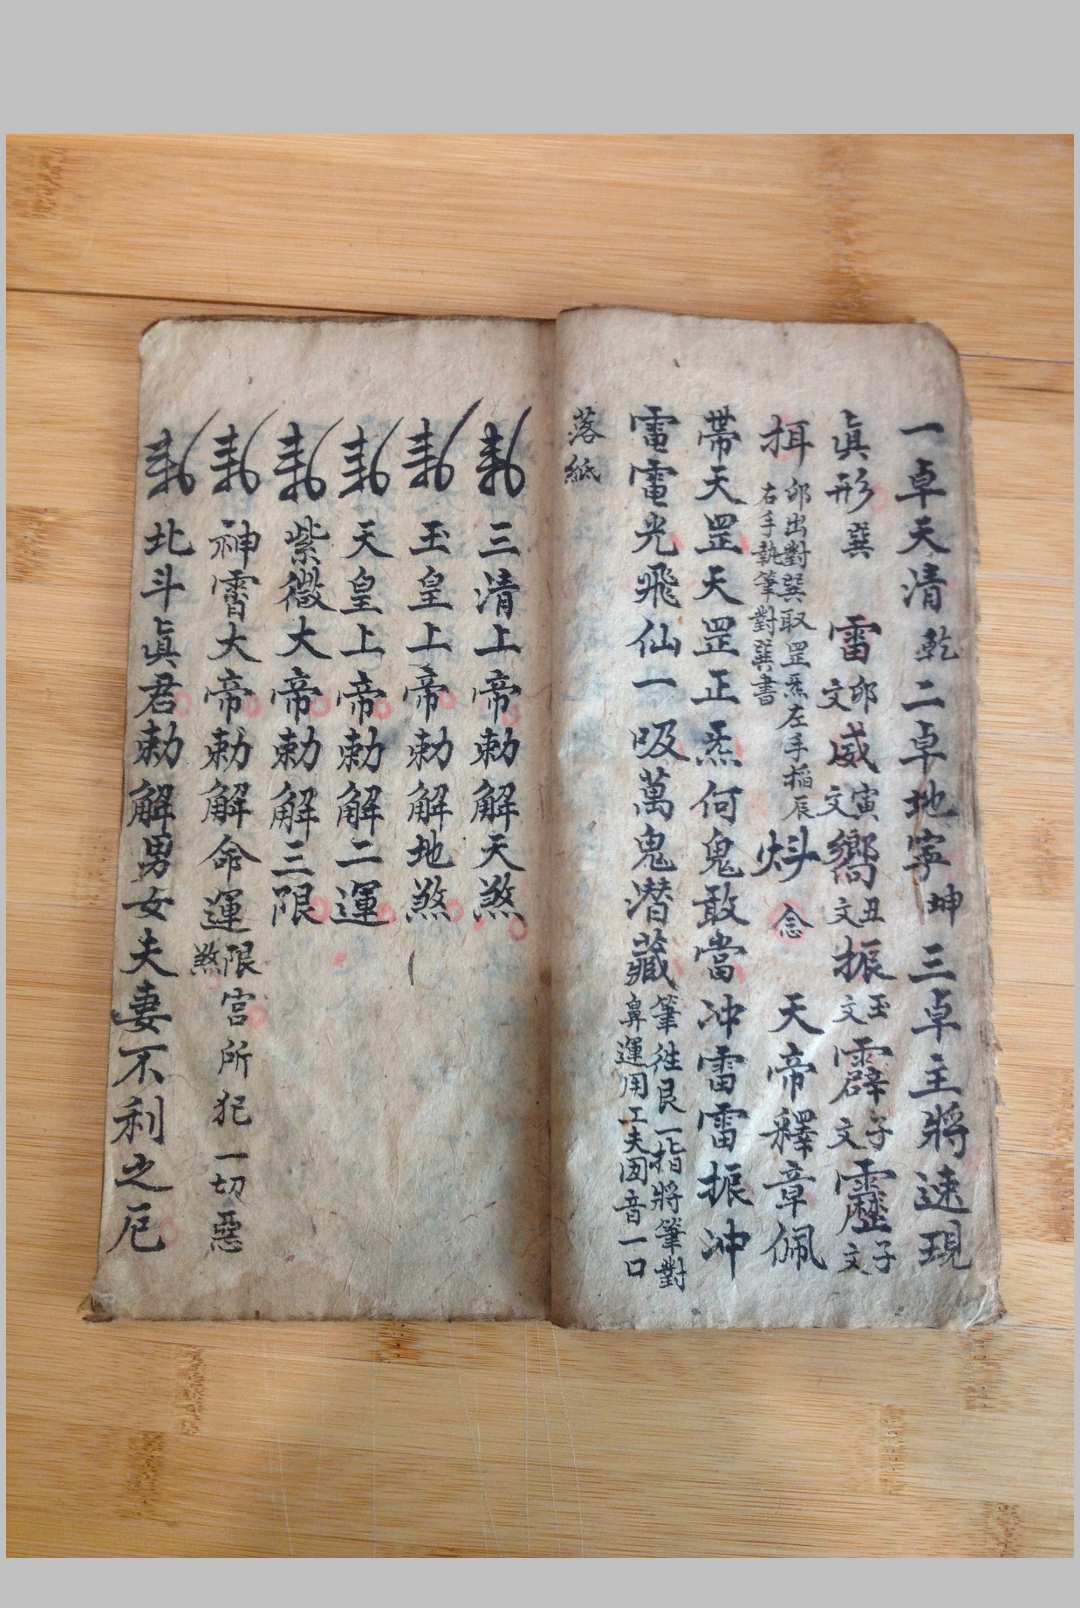 一卓天清乾二卓地寧坤三卓主將速現
眞形巽 雷卯文威寅文嚮丑文振玉文霹子文靂子文
挕卯出對巽取罡炁左手搯辰右手執筆對巽書 炓念 天帝釋章佩
帶天罡天罡正炁何鬼敢當冲雷雷振冲
雷電光飛仙一吸萬鬼潜藏筆徃艮一指將筆對鼻運用工夫囙音一口
落紙
三清上帝勅解天煞
玉皇上帝勅解地煞
天皇上帝勅解二運
紫微大帝勅解三限
神霄大帝勅解命運限煞宮所犯一切惡
北斗眞君勅解男女夫妻不利之厄